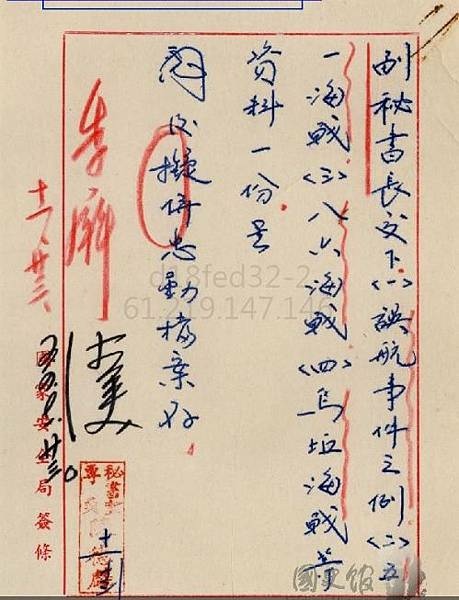 副秘書長交下〈一〉誤航事件之例〈二〉五
一海戰〈三〉八六海戰〈四〉烏坵海戰等
資料一份呈
閱後擬併忠勤檔案
十一、廿三
國家安全局簽條
秘書
專
d18fed32-2
61.219.147.146
國史館